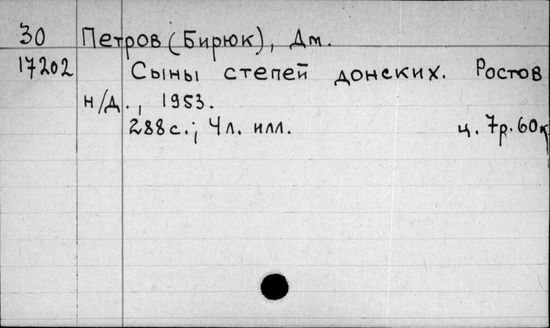 30 Петров (Бирюк), Дм.
17202 Сыны степей донских. Ростов
н/Д., 1953.
288 с.; 4 л. илл. ц. 7р. 60к